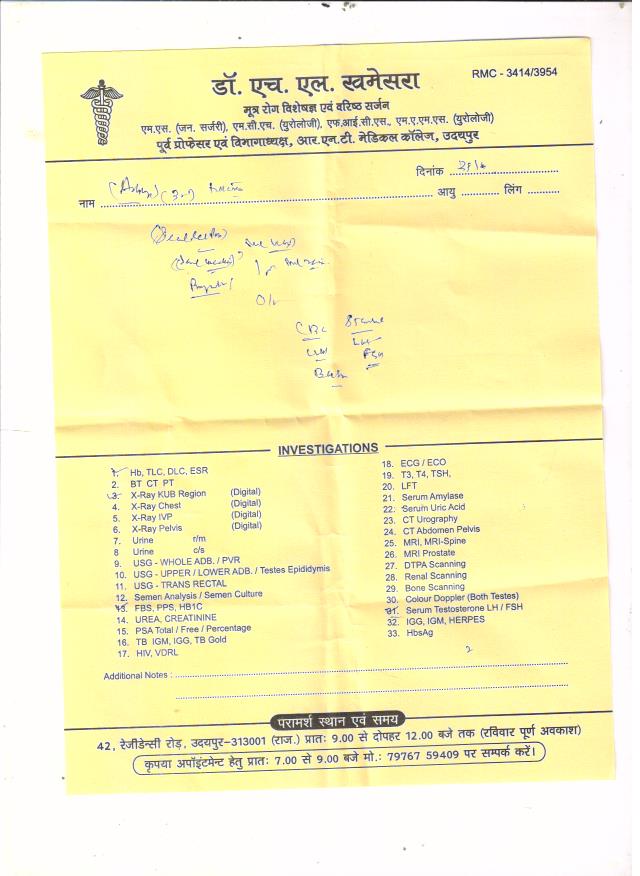 डॉ. एच. एल. खमेसरा
RMC - 3414/3954
मूत्र रोग विशेषज्ञ एवं वरिष्ठ सर्जन
एम.एस. (जन. सर्जरी), एम.सी.एच. (युरोलोजी), एफ.आई.सी.एस., एम.ए.एम.एस. (युरोलोजी)
पूर्व प्रोफेसर एवं विभागाध्यक्ष, आर.एन.टी. मेडिकल कॉलेज, उदयपुर
दिनांक
नाम
आयु
लिंग
CBC
LH
FSH
INVESTIGATIONS
1. Hb, TLC, DLC, ESR
2. BT CT PT
3. X-Ray KUB Region (Digital)
4. X-Ray Chest (Digital)
5. X-Ray IVP (Digital)
6. X-Ray Pelvis (Digital)
7. Urine r/m
8 Urine c/s
9. USG - WHOLE ADB. / PVR
10. USG - UPPER / LOWER ADB. / Testes Epididymis
11. USG - TRANS RECTAL
12. Semen Analysis / Semen Culture
13. FBS, PPS, HB1C
14. UREA, CREATININE
15. PSA Total / Free / Percentage
16. TB IGM, IGG, TB Gold
17. HIV, VDRL
18. ECG / ECO
19. T3, T4, TSH,
20. LFT
21. Serum Amylase
22. Serum Uric Acid
23. CT Urography
24. CT Abdomen Pelvis
25. MRI, MRI-Spine
26. MRI Prostate
27. DTPA Scanning
28. Renal Scanning
29. Bone Scanning
30. Colour Doppler (Both Testes)
31. Serum Testosterone LH / FSH
32. IGG, IGM, HERPES
33. HbsAg
Additional Notes :
परामर्श स्थान एवं समय
42, रेजीडेन्सी रोड़, उदयपुर-313001 (राज.) प्रातः 9.00 से दोपहर 12.00 बजे तक (रविवार पूर्ण अवकाश)
कृपया अपॉइंटमेन्ट हेतु प्रातः 7.00 से 9.00 बजे मो.: 79767 59409 पर सम्पर्क करें।